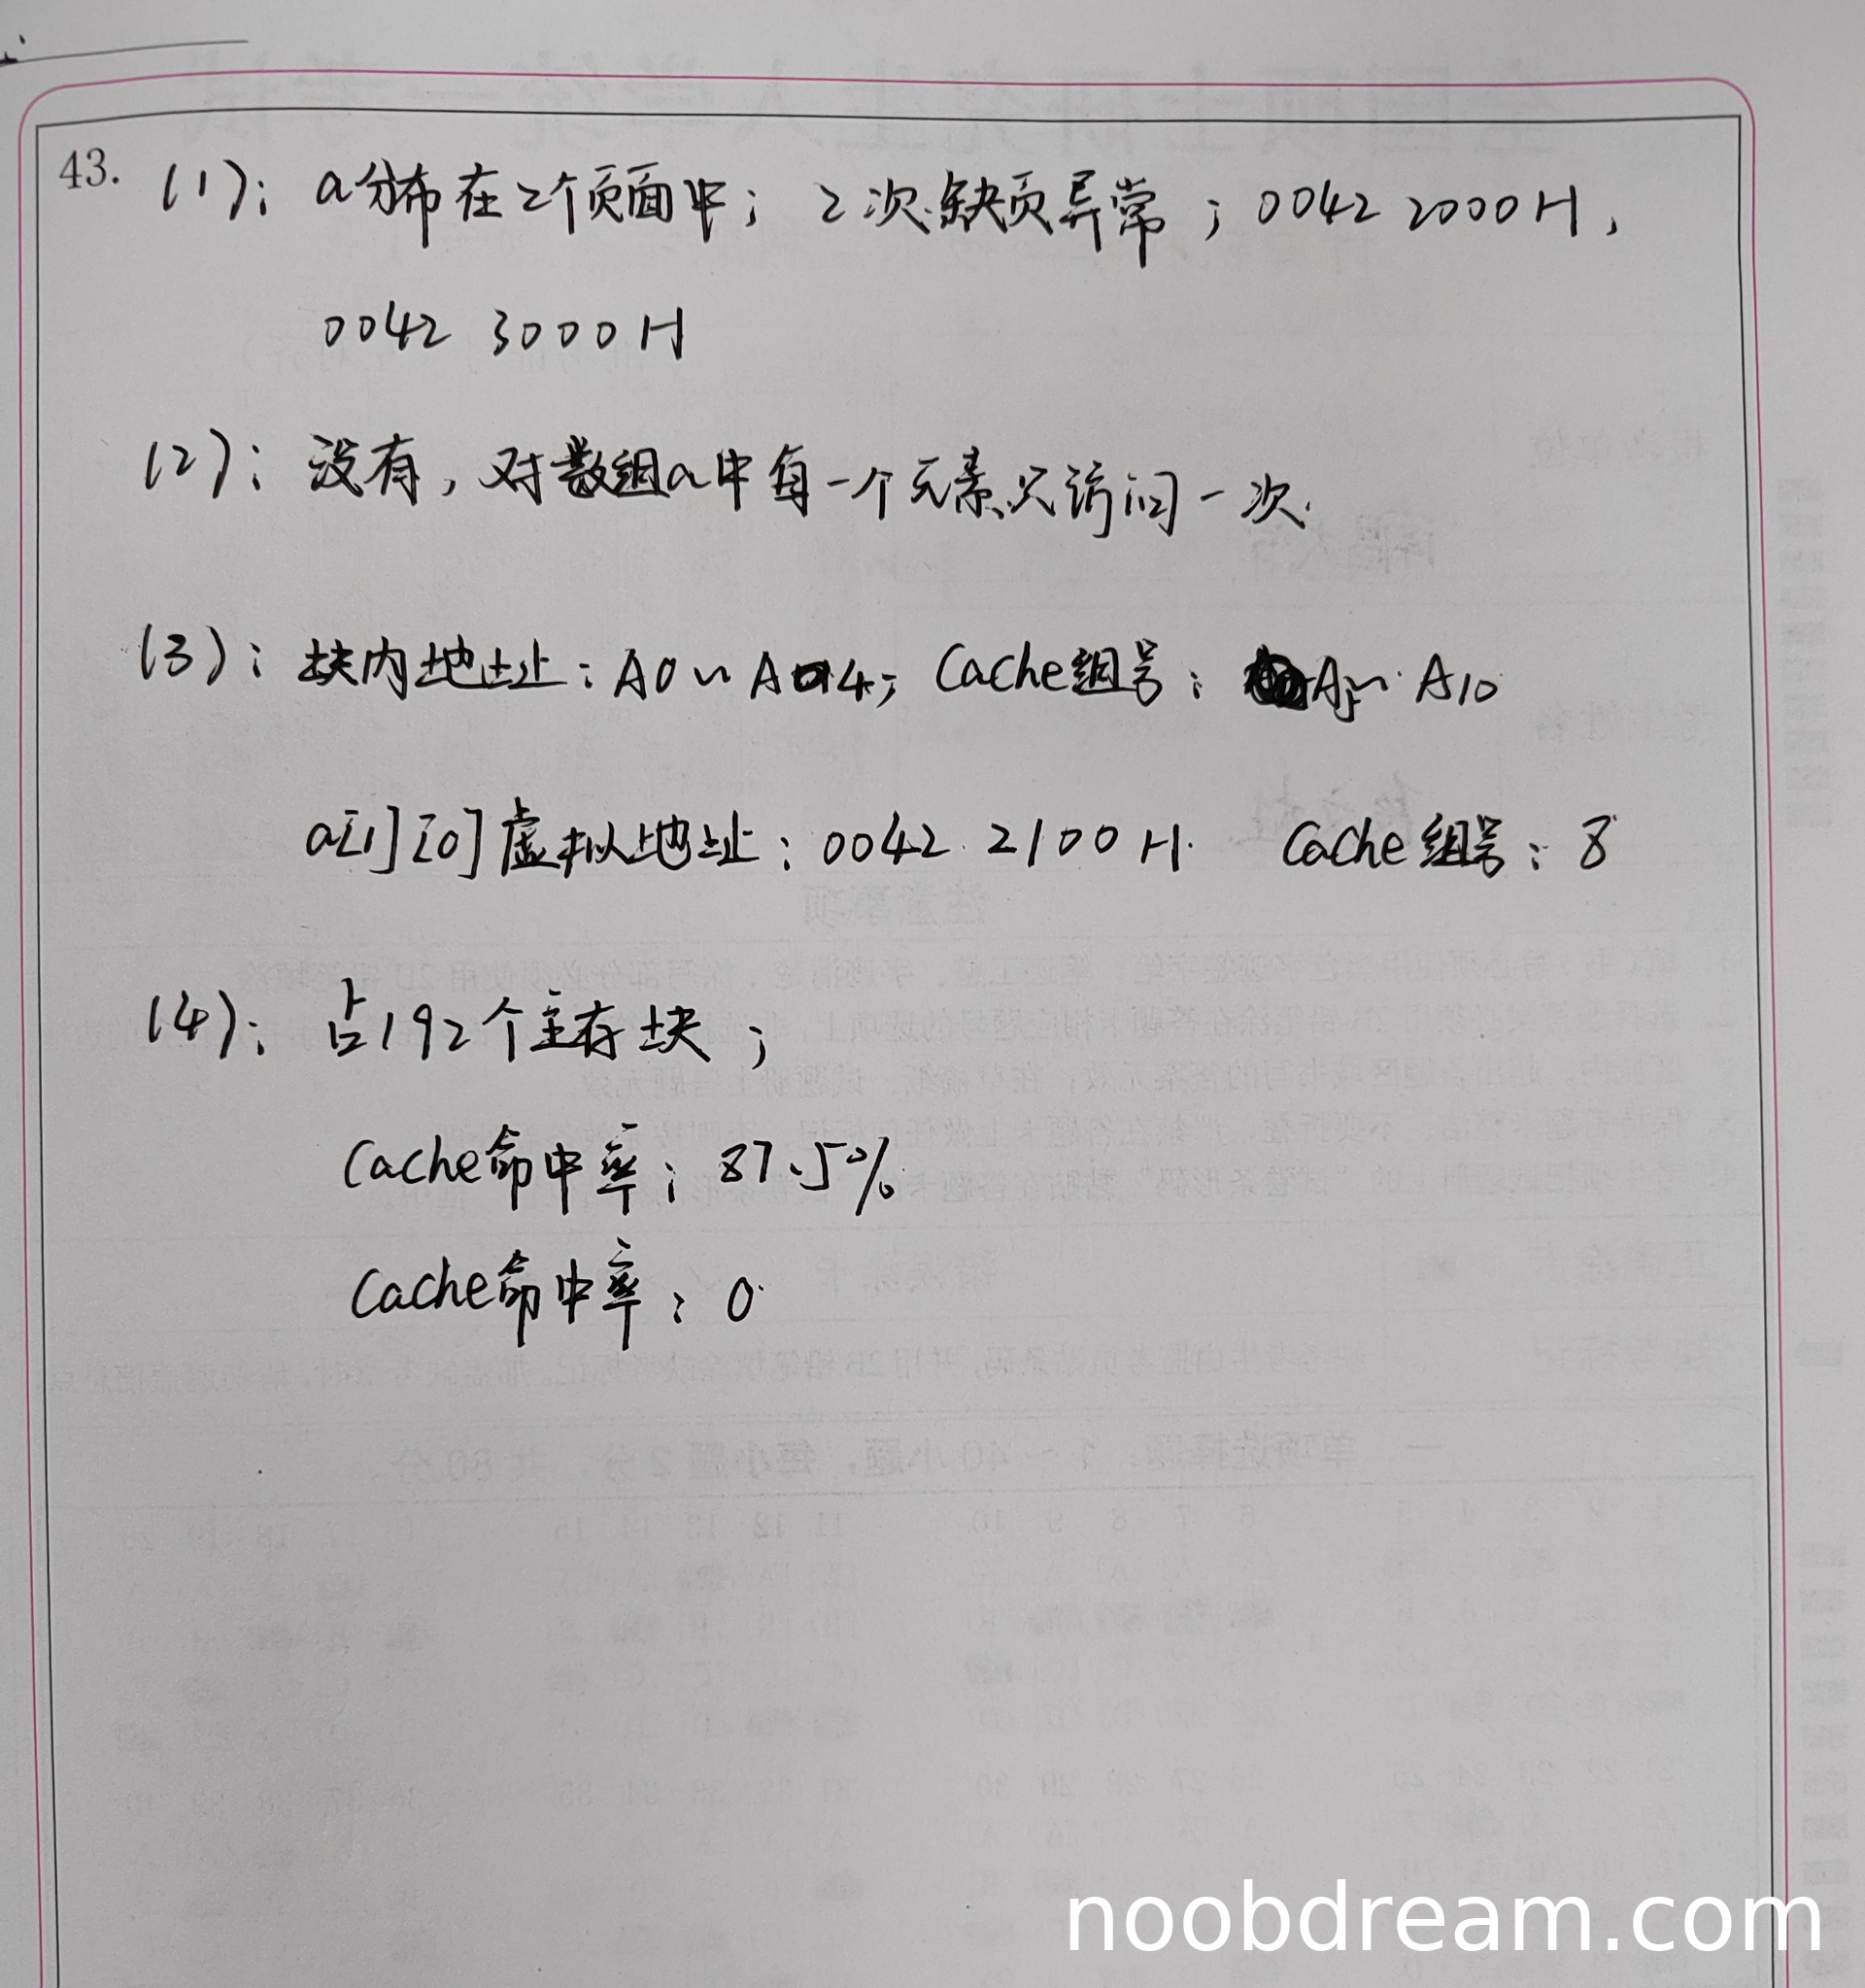 43. (1): a分布在2个页面中; 2次缺页异常; 0042 2000H,
0042 3000H
(2): 没有, 对数组a中每一个元素只访问一次.
(3): 块内地址: A0~A4; Cache组号: A5~A10
a[1][0]虚拟地址: 0042 2100H. Cache组号: 8
(4): 占192个主存块;
Cache命中率: 87.5%
Cache命中率: 0
noobdream.com